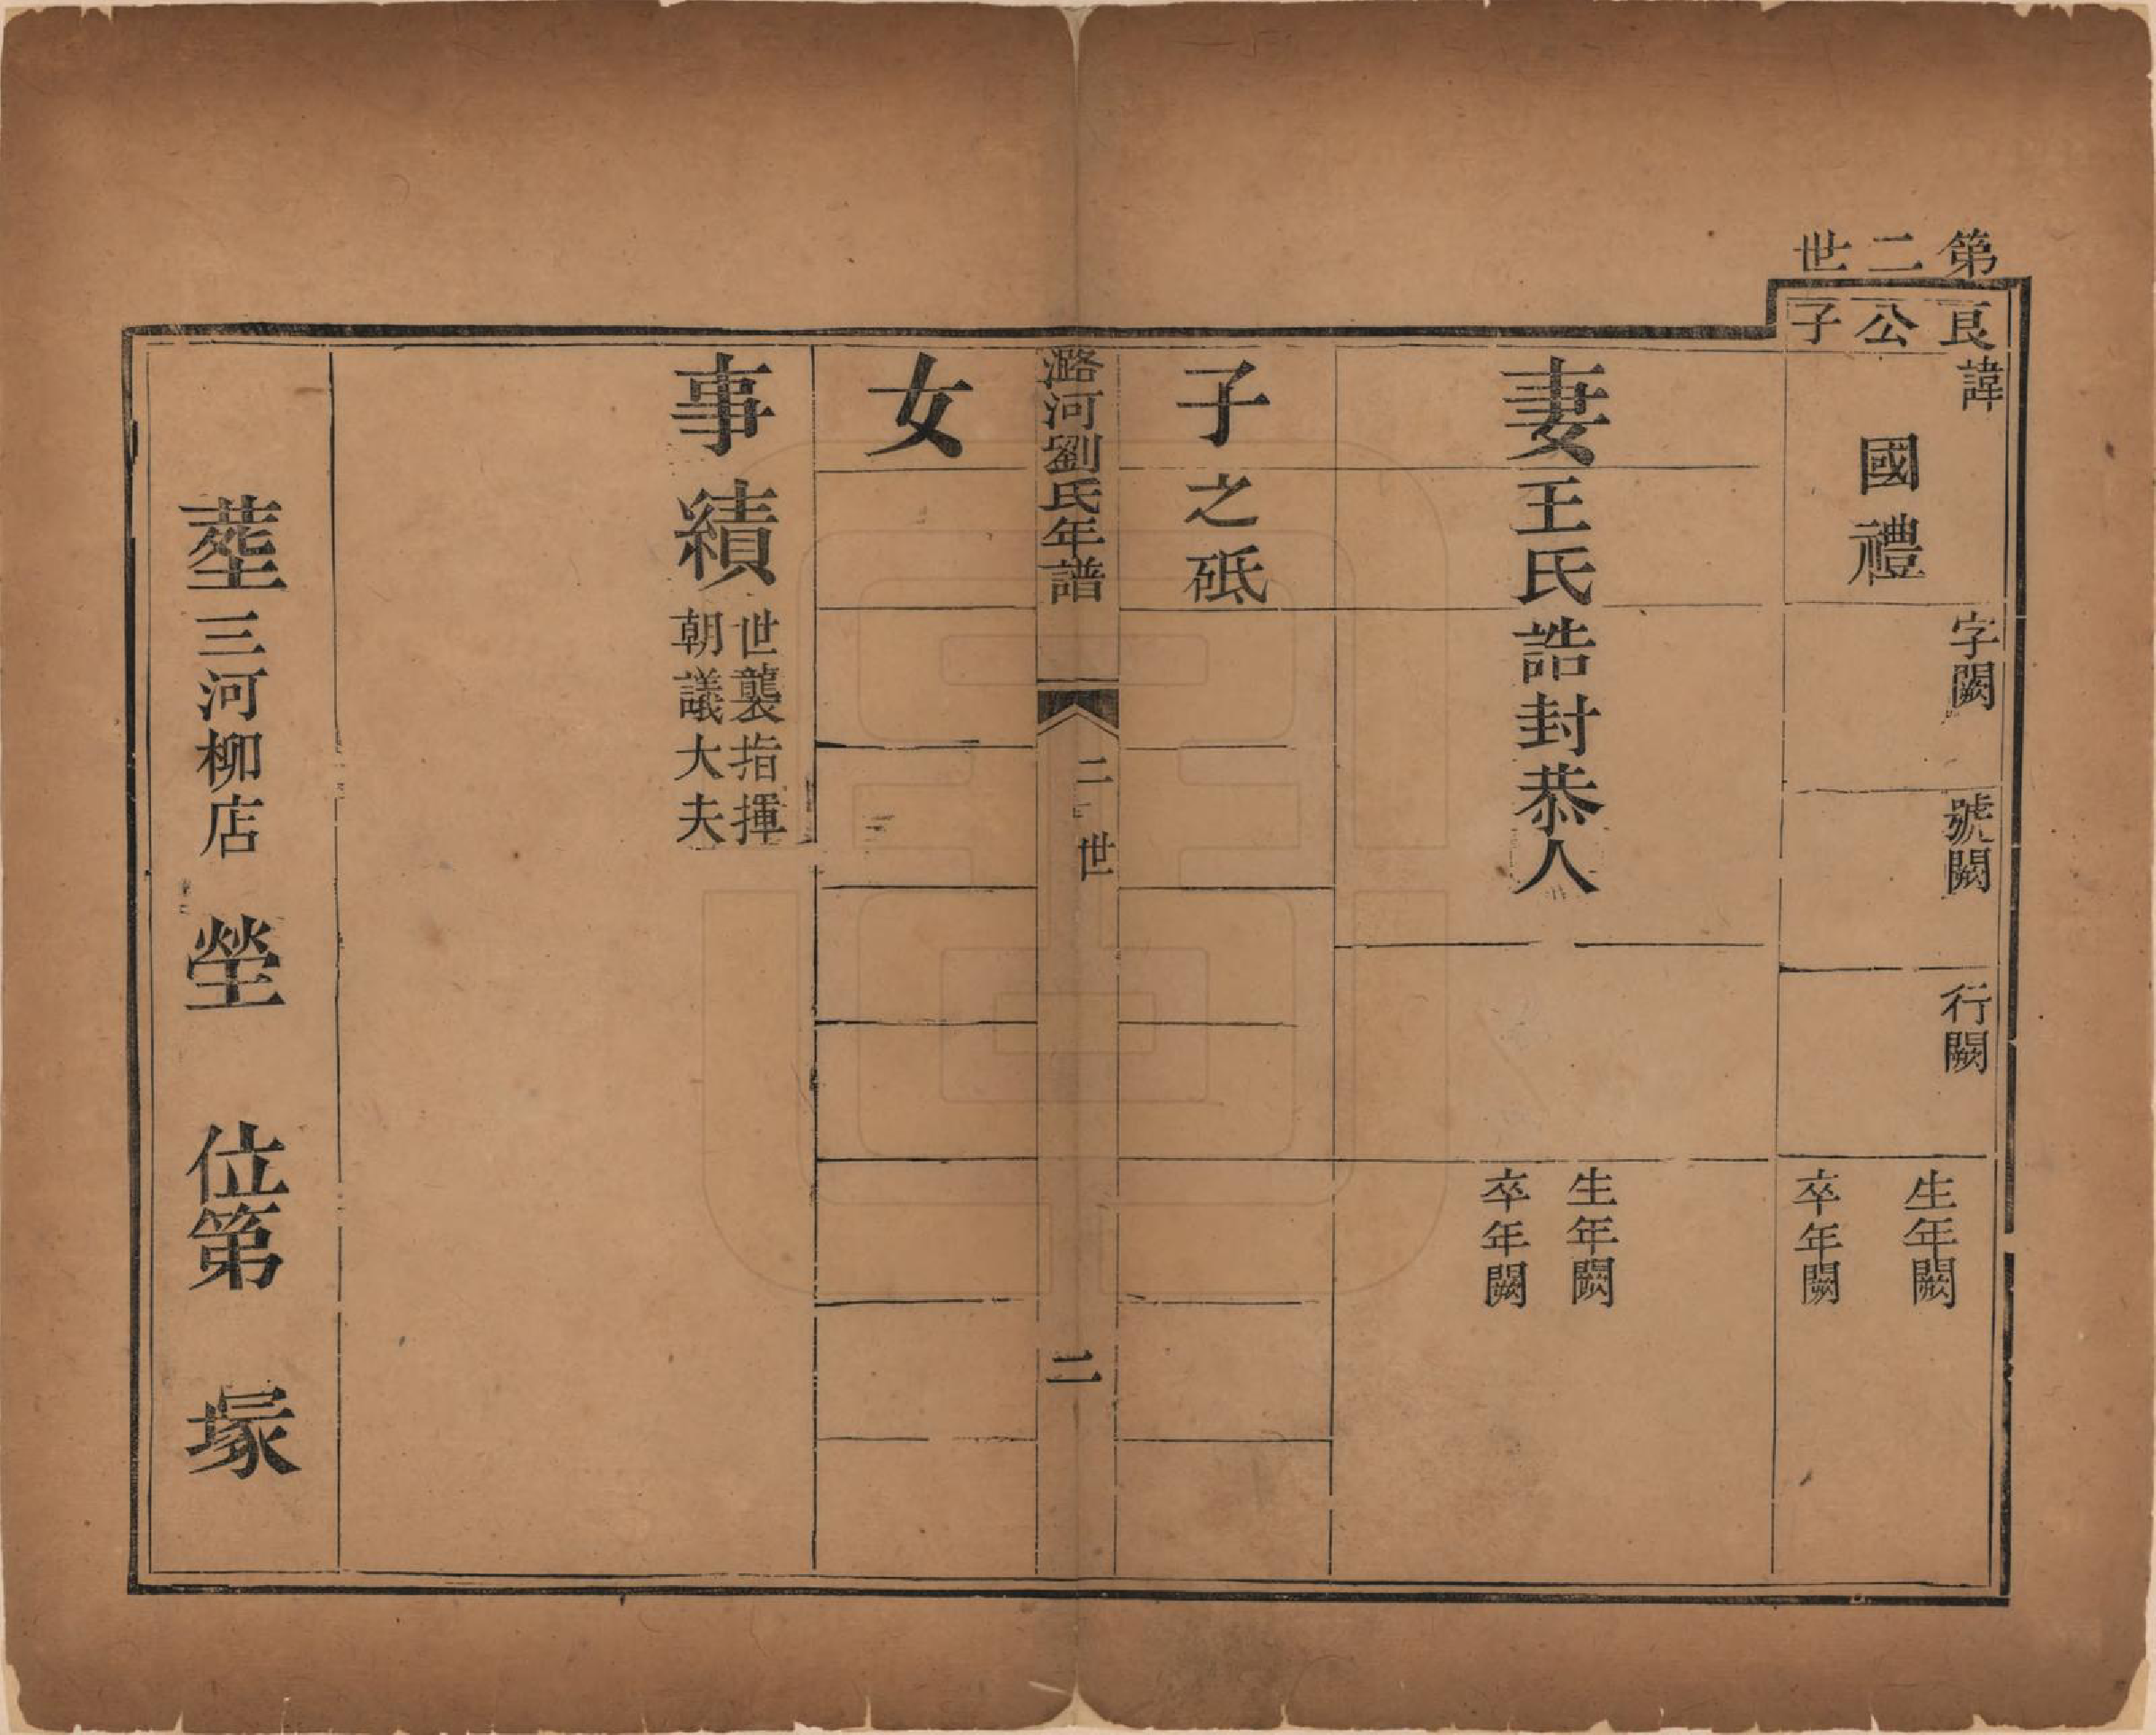 第二世
良公子
諱
國禮
字闕
號闕
行闕
生年闕
卒年闕
妻王氏誥封恭人
生年闕
卒年闕
子之砥
潞河劉氏年譜
二世
二
女
事績
世襲指揮
朝議大夫
塟三河柳店
塋
位第
塚